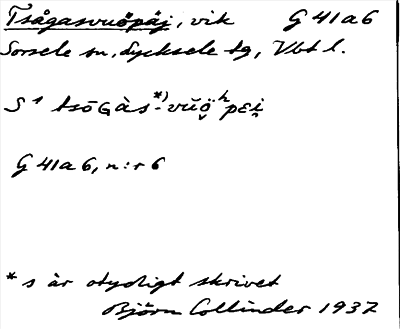 Tsågasvuöpaj, vik G 41 a 6
Sorsele sn, Lycksele tg, Vbt l.
S¹ tsōGàs*)-vŭö̬ʰpɛi̭
G 41 a 6, n:r 6
* s är otydligt skrivet
Björn Collinder 1937